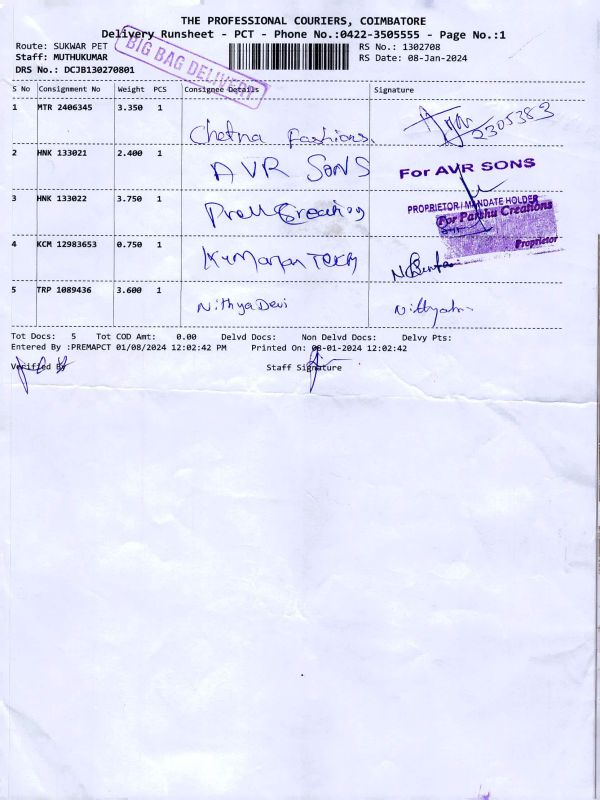 THE PROFESSIONAL COURIERS, COIMBATORE
Delivery Runsheet - PCT - Phone No.:0422-3505555 - Page No.:1
Route: SUKWAR PET
RS No.: 1302708
Staff: MUTHUKUMAR
RS Date: 08-Jan-2024
DRS No.: DCJB130270801
BIG BAG DELIVERY
S No Consignment No Weight PCS Consignee Details Signature
1 MTR 2406345 3.350 1 Chetna Fashions. 2305383
2 HNK 133021 2.400 1 AVR SONS
For AVR SONS
PROPRIETOR / MANDATE HOLDER
3 HNK 133022 3.750 1
For Parshu Creations
Proprietor
4 KCM 12983653 0.750 1 Kumaran Tex
5 TRP 1089436 3.600 1 Nithya Devi
Tot Docs: 5 Tot COD Amt: 0.00 Delvd Docs: Non Delvd Docs: Delvy Pts:
Entered By :PREMAPCT 01/08/2024 12:02:42 PM Printed On: 08-01-2024 12:02:42
Verified By Staff Signature